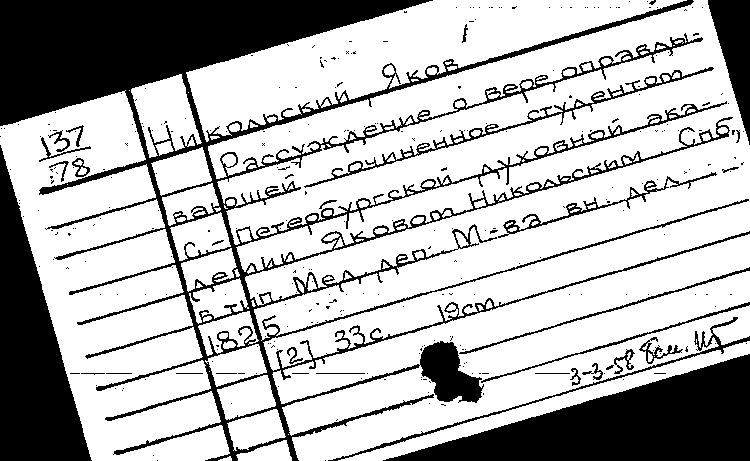 137
78
Никольский, Яков
Рассуждение о вере, оправды-
вающей, сочиненное студентом
С.-Петербургской духовной ака-
демии Яковом Никольским. Спб,
в тип. Мед. деп. М-ва вн. дел,
1825
[2], 33 с. 19 см.
3-3-58